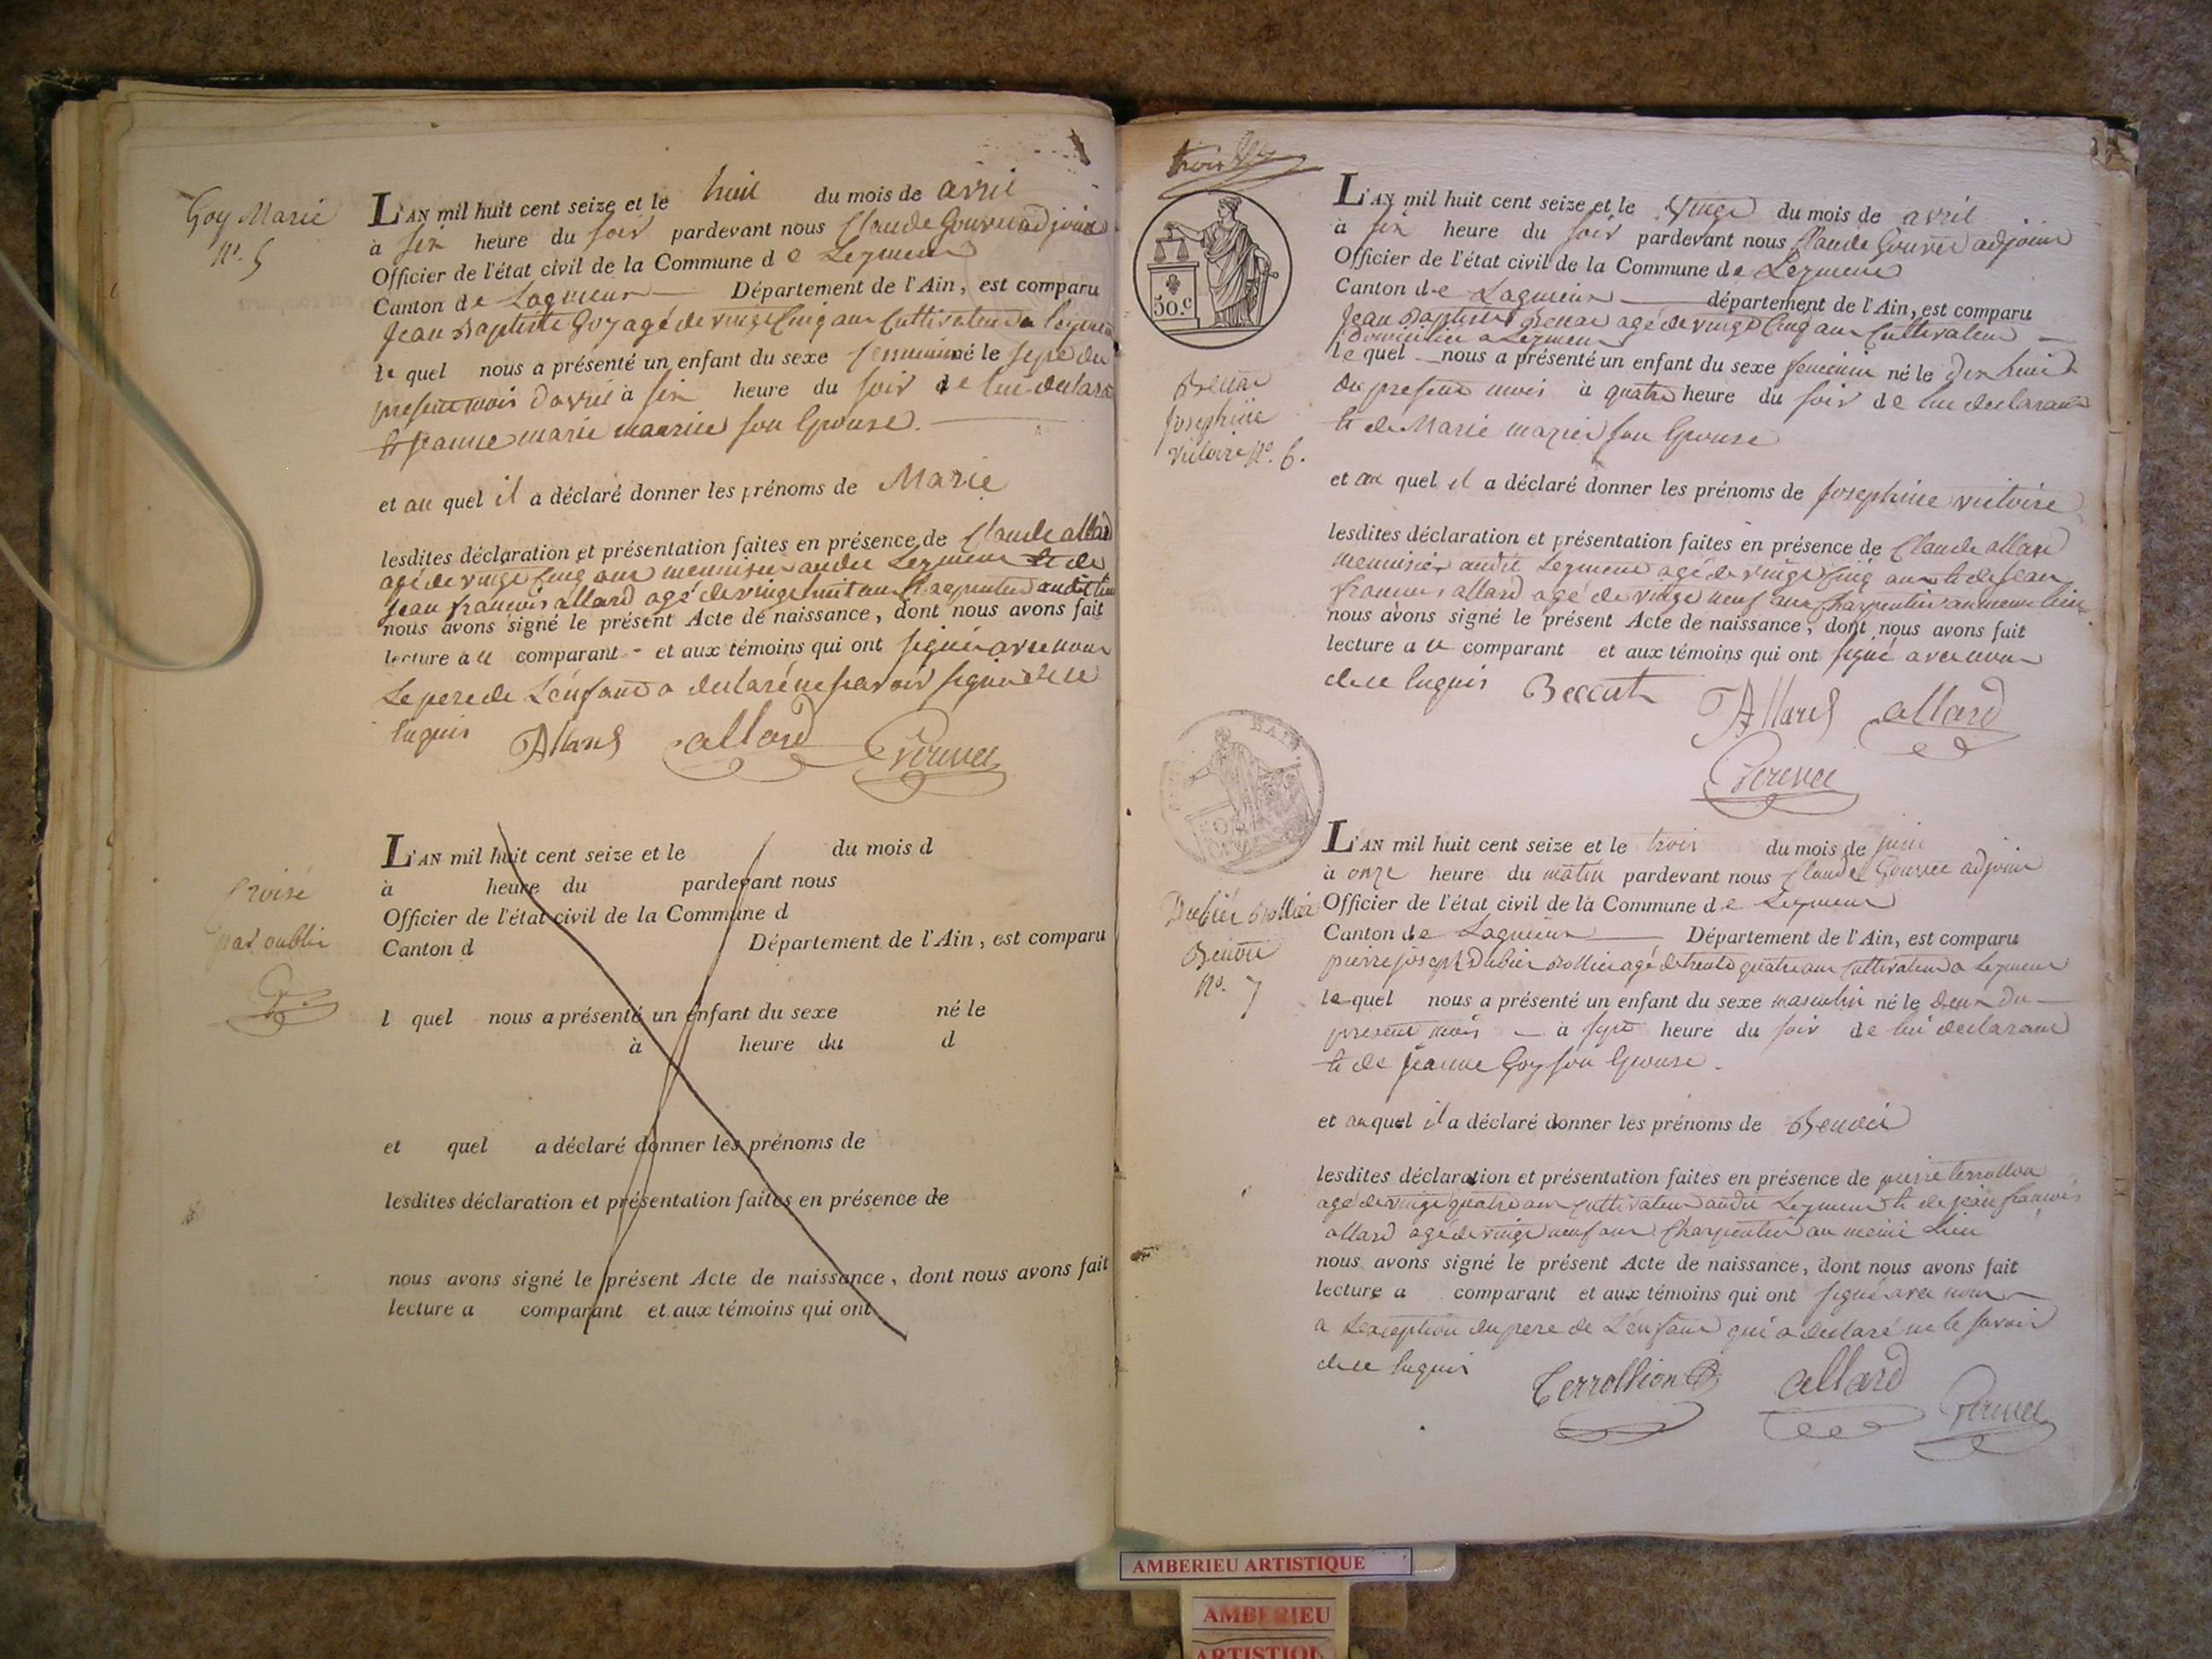 Goy Marie
N°. 5
L'AN mil huit cent seize et le huit du mois de avril
à six heure du soir pardevant nous Claude Gouvee adjoint
Officier de l'état civil de la Commune de Leyment
Canton de Lagnieux Département de l'Ain, est comparu
Jean Baptiste Goy agé de vingt Cinq ans Cultivateur a Leyment
le quel nous a présenté un enfant du sexe feminin né le sept du
present mois d'avril à six heure du soir de lui declara
et Jeanne marie maurice son Epouse.
et au quel il a déclaré donner les prénoms de Marie
lesdites déclaration et présentation faites en présence de Claude allard
agé de vingt Cinq ans menuisier audit Leyment et de
Jean françois allard agé de vingt huit ans Charpentier audit lieu
nous avons signé le présent Acte de naissance, dont nous avons fait
lecture au comparant - et aux témoins qui ont signé avec nous
Le pere de L'enfant a declaré ne savoir signer de ce
Enquis Allard allard Gouvee
Croisé
par oubli
L'AN mil huit cent seize et le du mois d
à heure du pardevant nous
Officier de l'état civil de la Commune d
Canton d Département de l'Ain, est comparu
l quel nous a présenté un enfant du sexe né le
à heure du d
et quel a déclaré donner les prénoms de
lesdites déclaration et présentation faites en présence de
nous avons signé le présent Acte de naissance, dont nous avons fait
lecture a comparant et aux témoins qui ont
trois
50.c
L'AN mil huit cent seize et le vingt du mois de avril
à six heure du soir pardevant nous Claude Gouvee adjoint
Officier de l'état civil de la Commune de Leyment
Canton de Lagnieux département de l'Ain, est comparu
Jean Baptiste agé de vingt Cinq ans Cultivateur
domicilié a Leyment
le quel nous a présenté un enfant du sexe feminin né le dix huit
du present mois à quatre heure du soir de lui declarant
et de Marie mazier son Epouse
Josephine
Victoire N°. 6.
et au quel il a déclaré donner les prénoms de Josephine victoire
lesdites déclaration et présentation faites en présence de Claude allard
menuisier audit Leyment agé de vingt Cinq ans et de Jean
françois allard agé de vingt neuf ans Charpentier au meme lieu
nous avons signé le présent Acte de naissance, dont nous avons fait
lecture au comparant et aux témoins qui ont signé avec nous
de ce Enquis Beccat Allard allard
Gouvee
L'AN mil huit cent seize et le trois du mois de juin
à onze heure du matin pardevant nous Claude Gouvee adjoint
Dubier Rollin
Benoit
N°. 7
Officier de l'état civil de la Commune de Leyment
Canton de Lagnieux Département de l'Ain, est comparu
pierre joseph Dubier Rollin agé de trente quatre ans Cultivateur a Leyment
le quel nous a présenté un enfant du sexe masculin né le deux du
present mois à sept heure du soir de lui declarant
et de Jeanne Goy son Epouse.
et auquel il a déclaré donner les prénoms de Benoit
lesdites déclaration et présentation faites en présence de pierre terrollion
agé de vingt quatre ans Cultivateur audit Leyment et de jean françois
allard agé de vingt neuf ans Charpentier au meme Lieu
nous avons signé le présent Acte de naissance, dont nous avons fait
lecture a comparant et aux témoins qui ont signé avec nous
a L'exception du pere de L'enfant qui a declaré ne le savoir
de ce Enquis Terrollion allard Gouvee
AMBERIEU ARTISTIQUE
AMBERIEU
ARTISTIQ